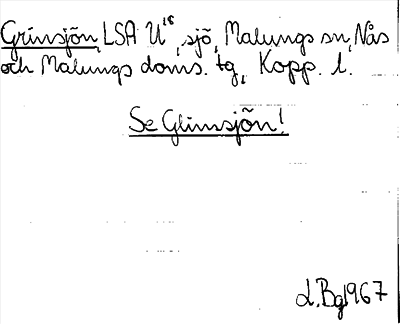 Grimsjön, LSA U¹⁸, sjö, Malungs sn, Nås
och Malungs doms. tg, Kopp. l.
Se Glimsjön!
L.Bg 1967